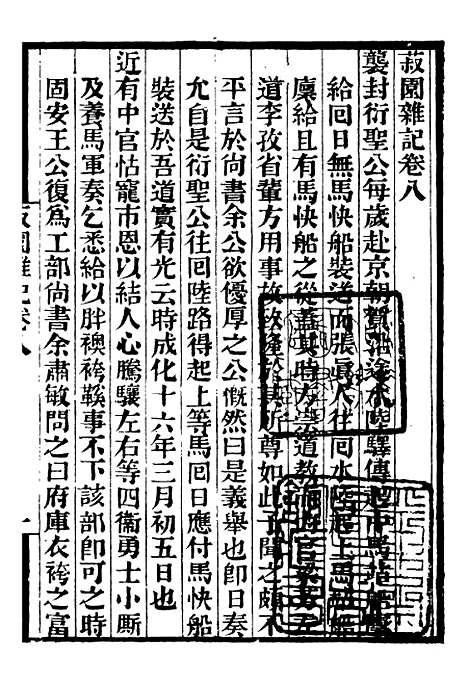 菽園雜記卷八
襲封衍聖公每歲赴京朝賀沿途水陸驛傳起中馬站船廩
給回日無馬快船裝送而張眞人往回水陸起上馬站船
廩給且有馬快船之從蓋其時方崇道教而內官梁芳左
道李孜省輩方用事故致隆於其所尊如此予聞之頗不
平言於尚書余公欲優厚之公慨然曰是義舉也卽日奏
允自是衍聖公往回陸路得起上等馬回日應付馬快船
裝送於吾道實有光云時成化十六年三月初五日也
近有中官怙寵市恩以結人心騰驤左右等四衞勇士小廝
及養馬軍奏乞悉給以胖襖袴鞵事不下該部卽可之時
固安王公復爲工部尚書余肅敏問之曰府庫衣袴之富
菽園雜記卷八
一